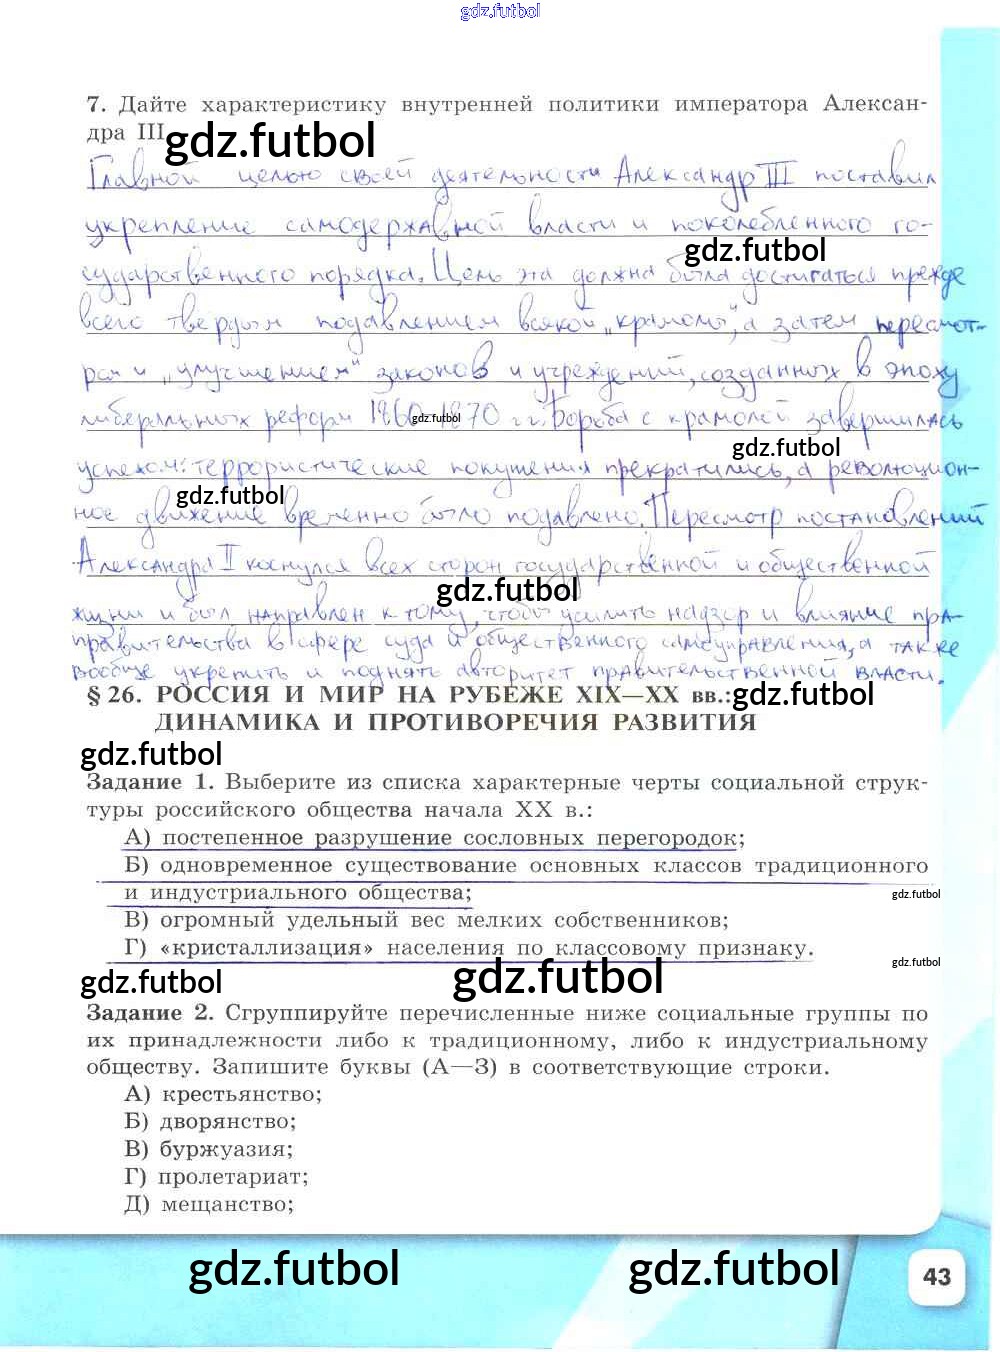 gdz.futbol
7. Дайте характеристику внутренней политики императора Алексан-
дра III
gdz.futbol
Главной целью своей деятельности Александр III поставил
укрепление самодержавной власти и поколебленного го-
gdz.futbol
сударственного порядка. Цель эта должна была достигаться прежде
всего твердым подавлением всякой „крамолы", а затем пересмот-
ром и „улучшением" законов и учреждений, созданных в эпоху
либеральных реформ 1860-1870 гг. Борьба с крамолой завершилась
gdz.futbol
gdz.futbol
успехом: террористические покушения прекратились, а революцион-
gdz.futbol
ное движение временно было подавлено. Пересмотр постановлений
Александра II коснулся всех сторон государственной и общественной
gdz.futbol
жизни и был направлен к тому, чтобы усилить надзор и влияние пра-
правительства в сфере суда и общественного самоуправления, а также
вообще укрепить и поднять авторитет правительственной власти.
§ 26. РОССИЯ И МИР НА РУБЕЖЕ XIX—XX вв.:
gdz.futbol
ДИНАМИКА И ПРОТИВОРЕЧИЯ РАЗВИТИЯ
gdz.futbol
Задание 1. Выберите из списка характерные черты социальной струк-
туры российского общества начала XX в.:
А) постепенное разрушение сословных перегородок;
Б) одновременное существование основных классов традиционного
и индустриального общества;
gdz.futbol
В) огромный удельный вес мелких собственников;
Г) «кристаллизация» населения по классовому признаку.
gdz.futbol
gdz.futbol
gdz.futbol
Задание 2. Сгруппируйте перечисленные ниже социальные группы по
их принадлежности либо к традиционному, либо к индустриальному
обществу. Запишите буквы (А—З) в соответствующие строки.
А) крестьянство;
Б) дворянство;
В) буржуазия;
Г) пролетариат;
Д) мещанство;
gdz.futbol
gdz.futbol
43